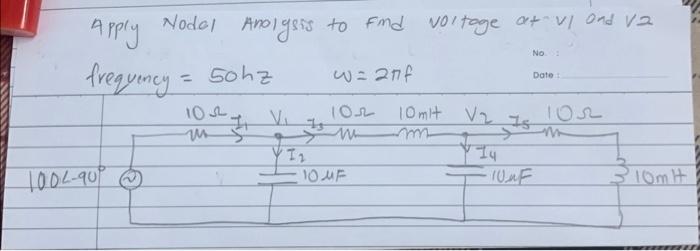 Apply Nodal Analysis to Find voltage at V1 and V2
No. :
frequency = 50hz ω = 2πf
Date :
10Ω I1 V1 I3 10Ω 10mH V2 I5 10Ω
I2 I4
100∠-90° 10μF 10μF 10mH